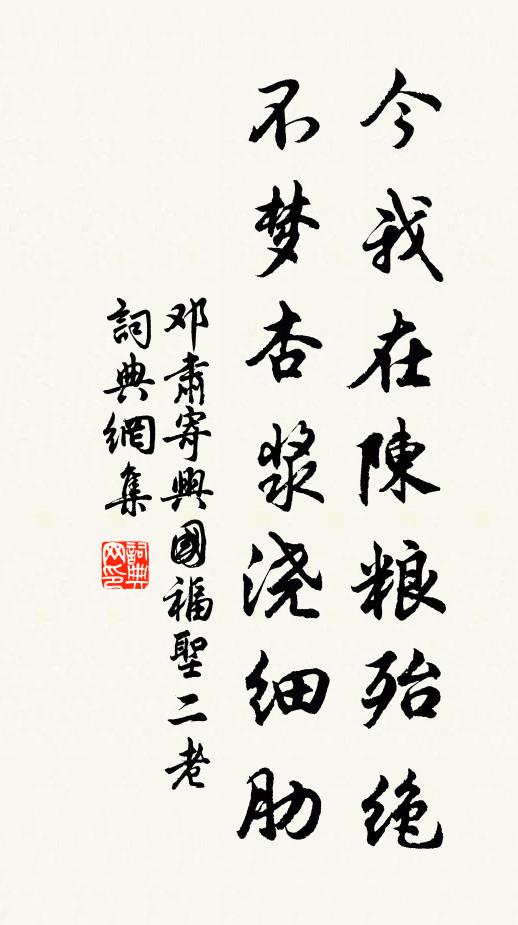 今我在陳粮殆绝
不梦杏浆浇细肋
邓肅寄興國福聖二老
詞典網集
詞典网印